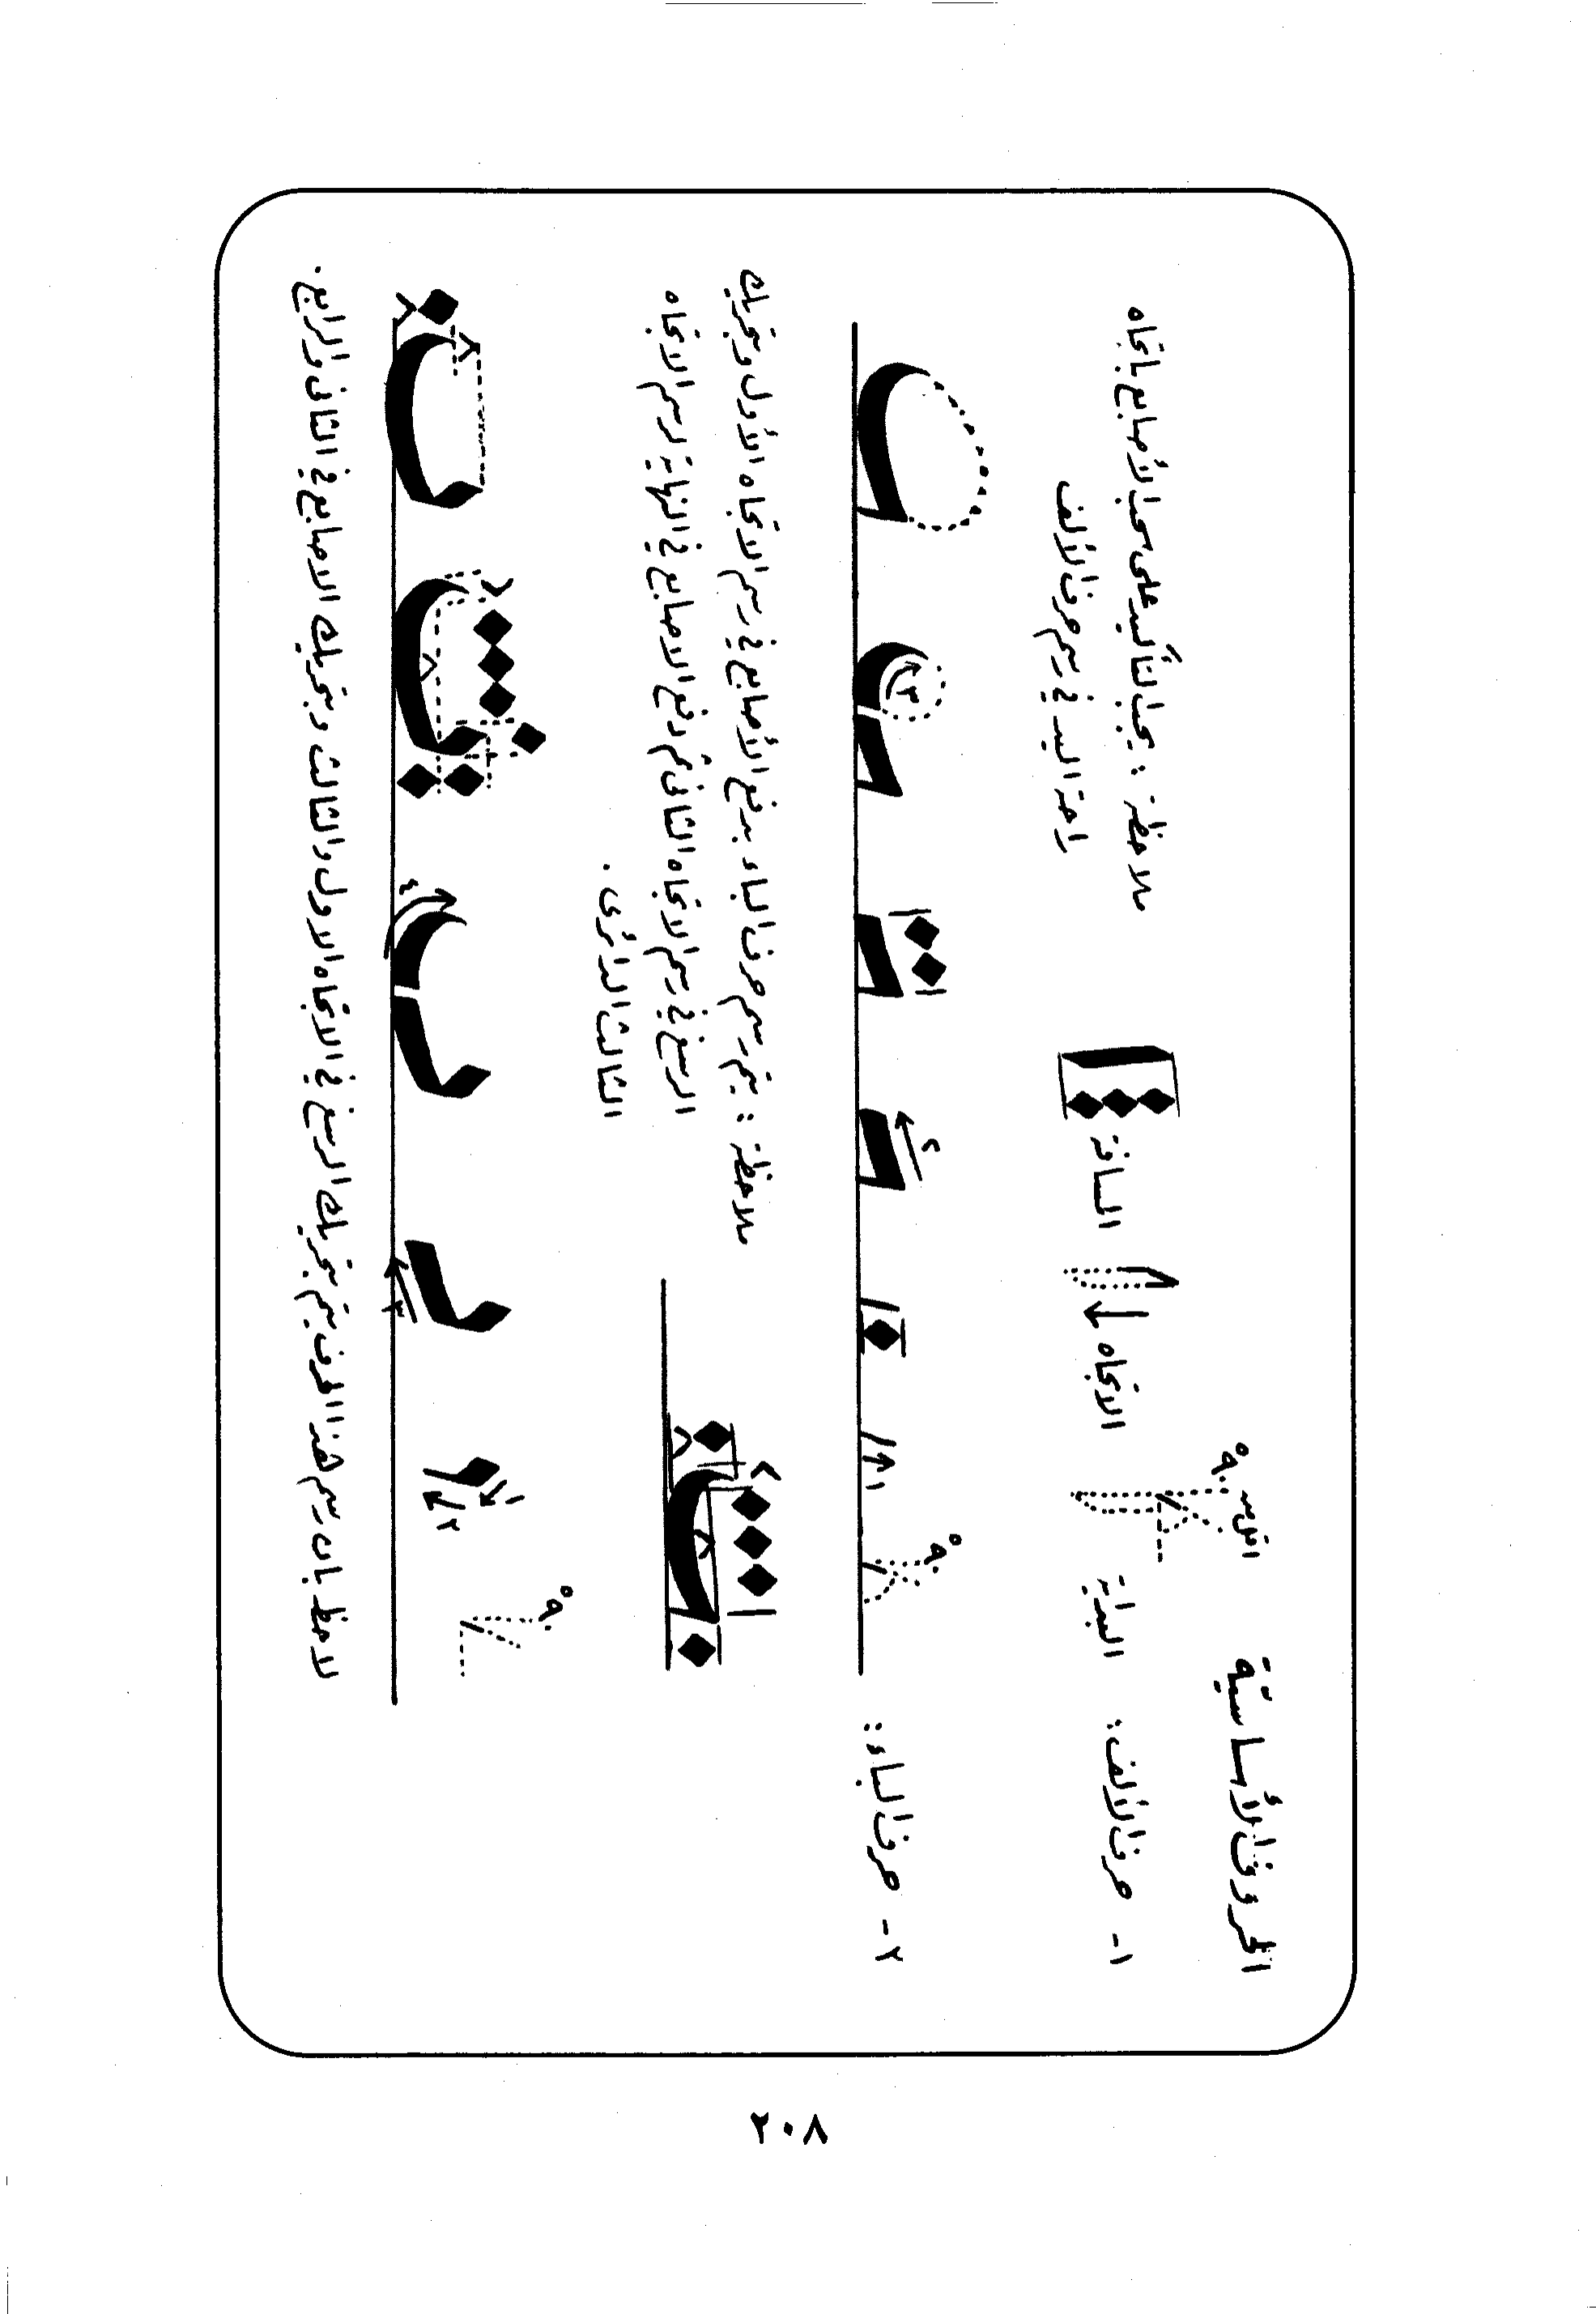 الحروف الأساسيّة
١- حرف الألف:
البداية
٩٠°
الاتجاه
المسافة
ملاحظة : يجب التأكيد على سحب الأصابع باتجاه
راحة اليد في رسم حرف الألف
٢- حرف الباء :
٩٠°
١
٢
٣
ملاحظة : يتم رسم حرف الباء بدفع الأصابع في رسم الاتجاه الأول وتحريك
الرسغ في رسم الاتجاه الثاني ثم دفع الاصابع في النهاية لرسم الاتجاه
الثالث الدائري .
٩٠°
١
٢
٣
٤
لاحظ بان رسم هذا الحرف يتم بتحريك الرسغ في الاتجاه الاول والثالث وبتحريك الاصابع في الثاني والرابع .
٢٠٨